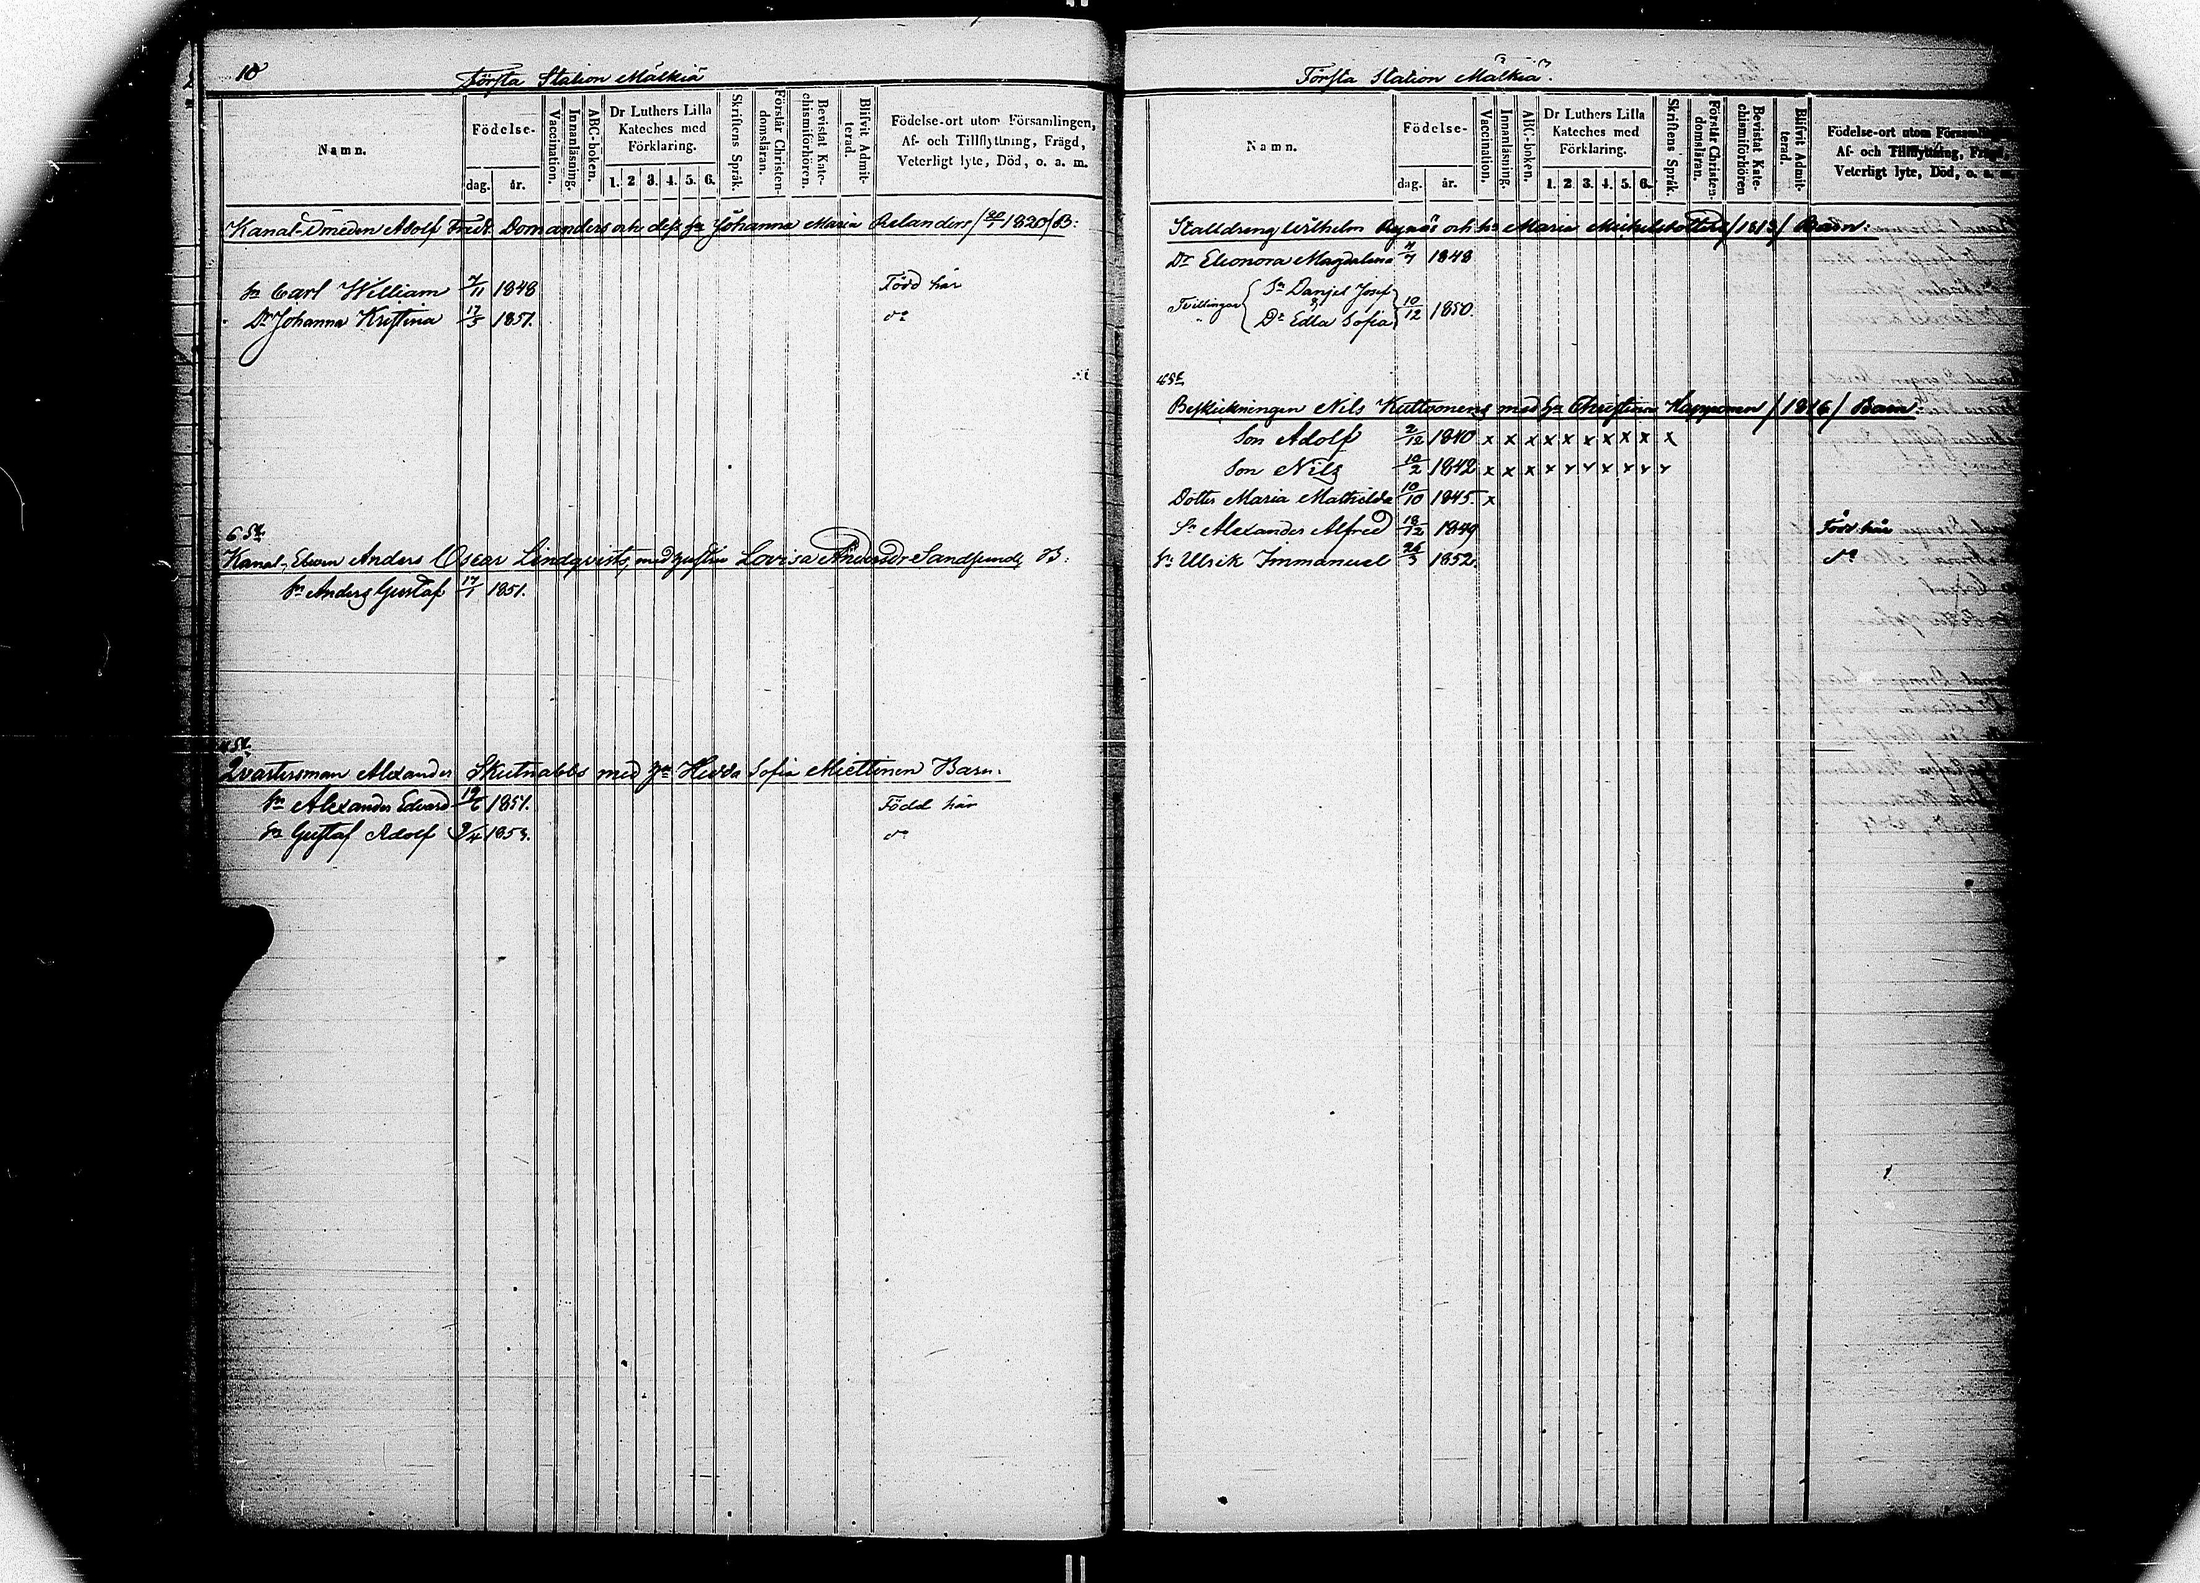 10
Första Station Mälkiä
Namn.
Födelse-
dag.
år.
Vaccination.
Innanläsning.
ABC-boken.
Dr Luthers Lilla
Kateches med
Förklaring.
1. 2 3. 4. 5. 6.
Skriftens Språk.
Förstår Christen-
domsläran.
Bevistat Kate-
chismiförhören.
Blifvit Admit-
terad.
Födelse-ort utom Församlingen,
Af- och Tillflyttning, Frägd,
Veterligt lyte, Död, o. a. m.
Kanal-Smeden Adolf Fredr. Domanders och dess hu Johanna Maria Relanders /20/1 1820/ B:
Sn Carl William 7/11 1848 Född här
Dr Johanna Kristina 17/3 1851. do
6 St.
Kanal- Anders Oscar Lindqvists, med hustru Lovisa Andersdr Sandsunds B:
Sn Anders Gustaf 17/1 1851.
4 St.
Qvartersman Alexander Skutnabbs med hu Hedda Sofia Miettinen Barn.
Sn Alexander Edvard 19/6 1851. Född här
Sn Gustaf Adolf 9/4 1853. do
Första Station Mälkiä.
Namn.
Födelse-
dag.
år.
Vaccination.
Innanläsning.
ABC-boken.
Dr Luthers Lilla
Kateches med
Förklaring.
1. 2 3. 4. 5. 6.
Skriftens Språk.
Förstår Christen-
domsläran.
Bevistat Kate-
chismiförhören
Blifvit Admit-
terad.
Födelse-ort utom
Af- och Tillflyttning, Frägd,
Veterligt lyte, Död, o. a. m.
Stalldreng Wilhelm och hu Maria Mickelsdotters /1813/ Barn:
Dr Eleonora Magdalena 4/7 1848
Tvillingar { Sn Danjel Josef
& } 10/12 1850.
Dr Edla Sofia
4 St.
Beskickningen Nils Kuttvonens med hu Christina Happonen /1816/ Barn:
Son Adolf 2/12 1840 x x x x x x x x x x
Son Nils 10/2 1842 x x x x x x x x x x
Dotter Maria Mathilda 10/10 1845. x
Sn Alexander Alfred 18/12 1849 Född här
Sn Ulrik Immanuel 26/3 1852. do